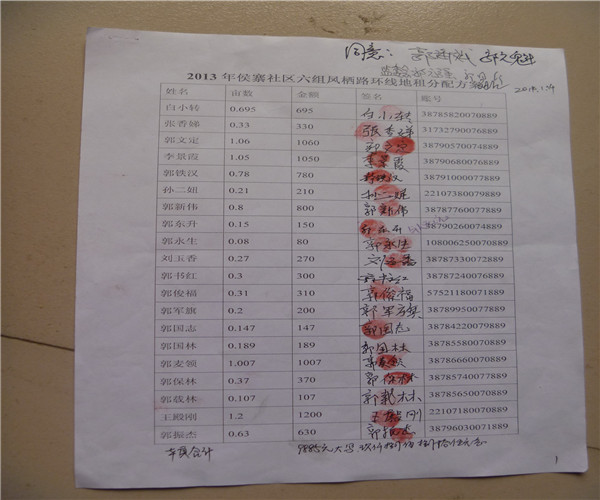 同意：
2013 年侯寨社区六组凤栖路环线地租分配方案
姓名 亩数 金额 签名 账号
白小转 0.695 695 白小转 38785820070889
张香娣 0.33 330 张香娣 31732790076889
郭文定 1.06 1060 郭文定 38790570074889
李景霞 1.05 1050 李景霞 38790680076889
郭铁汉 0.78 780 38791000077889
孙二妞 0.21 210 孙二妞 22107380079889
郭新伟 0.8 800 郭新伟 38787760077889
郭东升 0.15 150 郭东升 38790260074889
郭永生 0.08 80 郭永生 108006250070889
刘玉香 0.27 270 刘玉香 38787330072889
郭书红 0.3 300 郭书红 38787240076889
郭俊福 0.31 310 郭俊福 57521180071889
郭军旗 0.2 200 郭军旗 38789950077889
郭国志 0.147 147 郭国志 38784220079889
郭国林 0.189 189 郭国林 38785580070889
郭麦领 1.007 1007 郭麦领 38786660070889
郭保林 0.37 370 郭保林 38785740077889
郭载林 0.107 107 郭载林 38785650070889
王殿刚 1.2 1200 王殿刚 22107180070889
郭振杰 0.63 630 郭振杰 38796030071889
本页合计 9885元大写